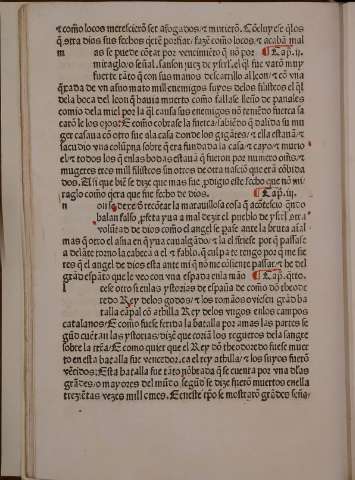 ⁊ como locos merescierõ ser afogados ⁊ muriero. Cõcluyese q̃los
q̃ cõtra dios sus fechos q̃rẽ porfiar / fazẽ como locos. ⁊ acabã mal
as se puede cõtar por vencimiẽto q̃ nõ por ¶ Cap. ij.
m miraglo / o señal. sanson juez de ysrl. el q̃l fue varõ muy
fuerte tãto q̃ con sus manos descarrillo al leon / ⁊ cõ vna
q̃xada de vn asno mato mill enemigos suyos delos filisteos el q̃l
dela boca del leon q̃ hauia muerto como fallase lleno de panales
comio dela miel por la q̃l causa sus enemigos nõ teniẽdo fuerça sa
carõ le los ojos: E como cobrase la fuerça / abiẽdo q̃ dalida su mu
ger casaua cõ otro fue ala casa donde los gigãtes / ⁊ ella estauã / ⁊
sacudio vna colũpna sobre q̃ era fundada la casa / ⁊ cayo / ⁊ murio
el / ⁊ todos los q̃ enlas bodas estauã q̃ fueron por numero oms / ⁊
mugeres tres mill filisteos sin otros de otra naciõ que erã cõbida
dos. Asi que biẽ se dize que mas fue, prodigio este fecho que nõ mi
raglo como q̃era que fue fecho de dios. ¶ Cap. iij.
n on se deue õ recõtar la marauillosa cosa q̃ acõtescio q̃ndo
balan falso, pfeta yua a mal dezir el pueblo de ysrl / ⁊ tra
volũtad de dios como el angel se puse ante la bruta aial
mas q̃ otro el asna en q̃ yua caualgãdo / ⁊ la el firiese por q̃ passase
a delãte torno la cabeca a el ⁊ fablo. q̃ culpa te tengo por q̃ me fie
res q̃ el angel de dios esta ante mi q̃ nõ me cõsiente passar. ⁊ he del
grãd espãto que le veo con vna espada enla mão ¶ Cap. q̃rto.
lese otrosi enlas ystorias de españa de como dõ theode
redo Rey delos godos / ⁊ los romãos ouiesen grãd ba
l talla cãpal cõ athilla Rey delos vngos enlos campos
catalanos / E como fuese ferida la batalla por amas las partes se
gũd cuẽtan las ystorias / dizẽ que corriã los regueros dela sangre
sobre la trra / E como quier que el Rey dõ theoderedo fuese muer
to en esta batalla fue vencedor. ca el rey athilla / ⁊ los suyos fuerõ
vẽcidos: Esta batalla fue tãto nõbrada q̃ se cuenta por vna dlas
grãdes / o mayores del mũdo segũd se dize fuerõ muertos enella
trezientas vezes mill omes. E eneste tpo se mostrarõ grãdes seña-